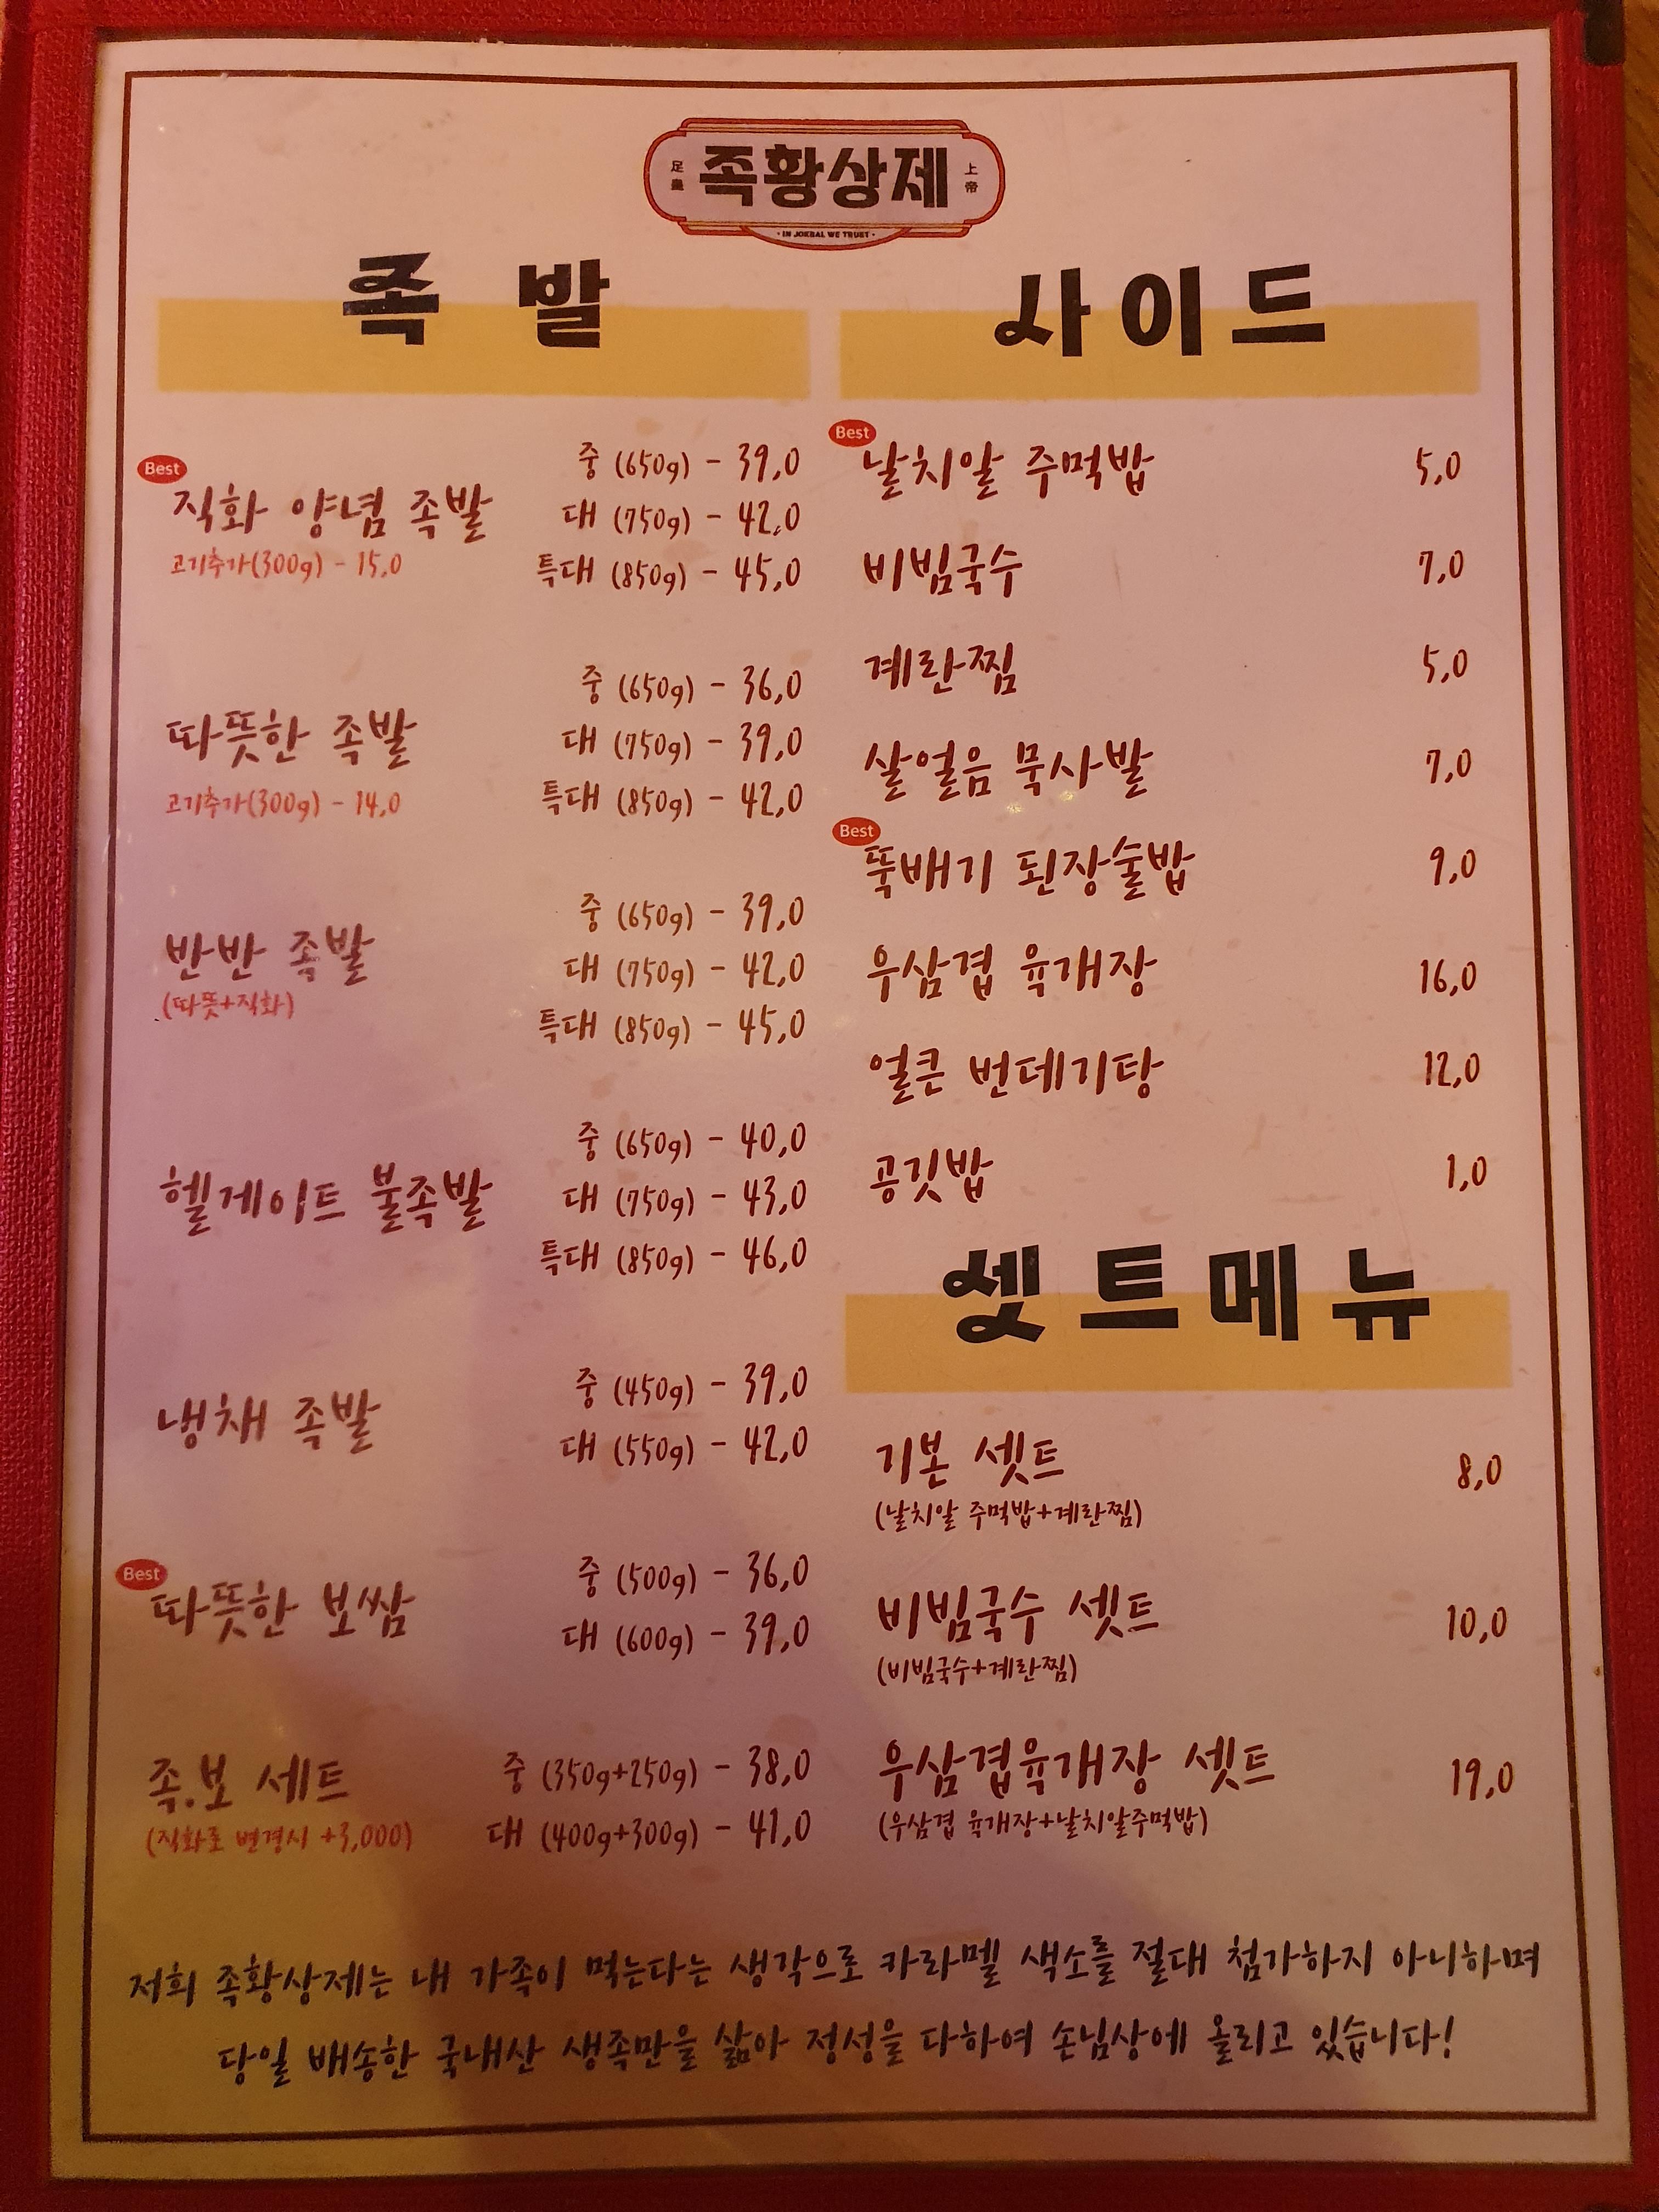 足皇 족황상제 上帝
- IN JOKBAL WE TRUST -
족발
Best
직화 양념 족발
고기추가(300g) - 15,0
중 (650g) - 39,0
대 (750g) - 42,0
특대 (850g) - 45,0
따뜻한 족발
고기추가(300g) - 14,0
중 (650g) - 36,0
대 (750g) - 39,0
특대 (850g) - 42,0
반반 족발
(따뜻+직화)
중 (650g) - 39,0
대 (750g) - 42,0
특대 (850g) - 45,0
헬게이트 불족발
중 (650g) - 40,0
대 (750g) - 43,0
특대 (850g) - 46,0
냉채 족발
중 (450g) - 39,0
대 (550g) - 42,0
Best
따뜻한 보쌈
중 (500g) - 36,0
대 (600g) - 39,0
족.보 세트
(직화로 변경시 +3,000)
중 (350g+250g) - 38,0
대 (400g+300g) - 41,0
사이드
Best
날치알 주먹밥 5,0
비빔국수 7,0
계란찜 5,0
살얼음 묵사발 7,0
Best
뚝배기 된장술밥 9,0
우삼겹 육개장 16,0
얼큰 번데기탕 12,0
공깃밥 1,0
셋트메뉴
기본 셋트 8,0
(날치알 주먹밥+계란찜)
비빔국수 셋트 10,0
(비빔국수+계란찜)
우삼겹육개장 셋트 19,0
(우삼겹 육개장+날치알주먹밥)
저희 족황상제는 내 가족이 먹는다는 생각으로 카라멜 색소를 절대 첨가하지 아니하며
당일 배송한 국내산 생족만을 삶아 정성을 다하여 손님상에 올리고 있습니다!